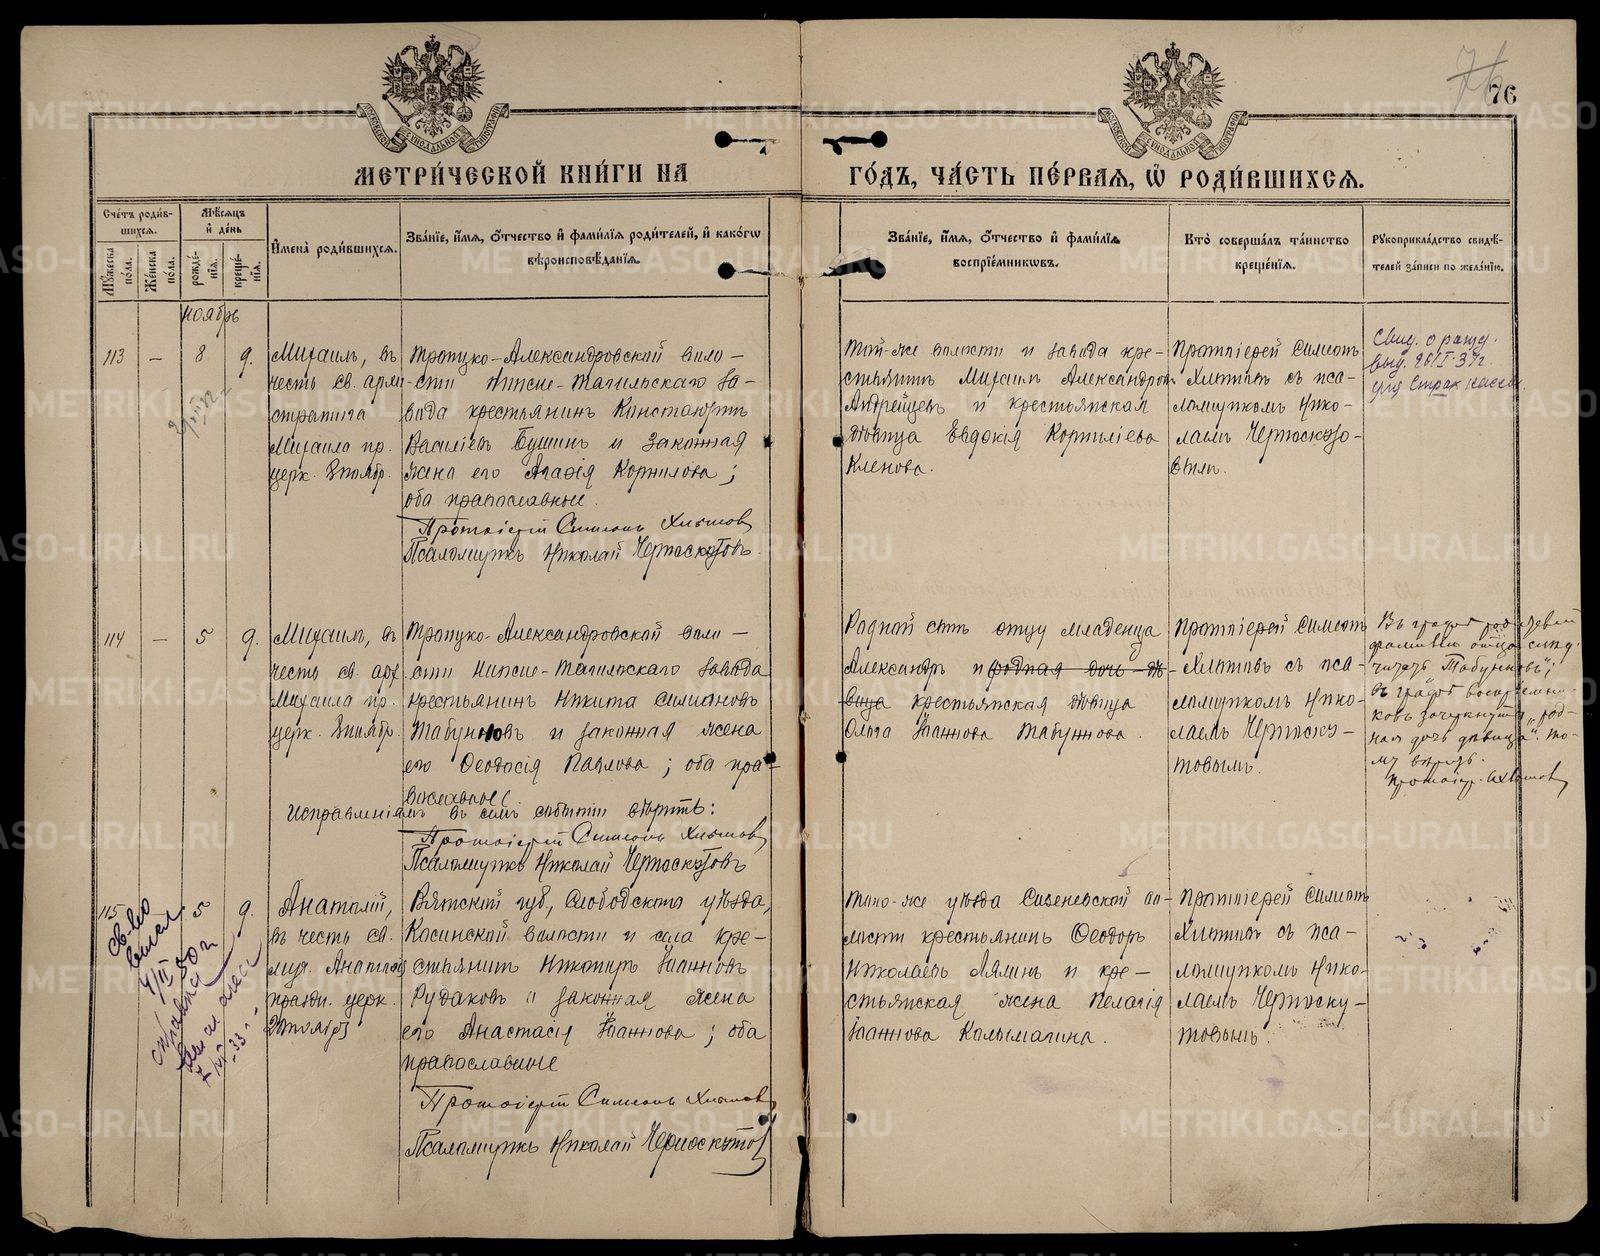 76
76
МОСКОВСКОЙ СѴНОДАЛЬНОЙ ТИПОГРАФІИ
МОСКОВСКОЙ СѴНОДАЛЬНОЙ ТИПОГРАФІИ
МЕТРИ́ЧЕСКОЙ КНИ́ГИ НА
ГО́ДЪ, ЧА́СТЬ ПЕ́РВАЯ, Ѽ РОДИ́ВШИХСЯ.
Сче́тъ роди́в-
шихся.
Мꙋ́жеска по́ла.
Же́нска по́ла.
Мѣ́сяцъ
и҆ де́нь
рожде́-
нїѧ.
креще́-
нїѧ.
И҆мена̀ роди́вшихся.
Зва́нїе, и҆́мѧ, ѻ҆́тчество и҆ фами́лїѧ роди́телей, и҆ како́гѡ
вѣроисповѣ́данїѧ.
Зва́нїе, и҆́мѧ, ѻ҆́тчество и҆ фами́лїѧ
воспрїе́мниковъ.
Кто̀ соверша́лъ та́инство
креще́нїѧ.
Рꙋкоприкла́дство свидѣ́-
телей за́писи по жела́нїю.
ноябрь
113
—
8
9.
Михаилъ, въ
честь св. архи-
стратига
Михаила пр.
церк. 8 ноябр.
Троицко-Александровской воло-
сти Нижне-Тагильскаго за-
вода крестьянинъ Константинъ
Васильевъ Бушинъ и законная
жена его Агафія Корнилова;
оба православные.
Протоіерей Симеонъ Хлыновъ
Псаломщикъ Николай Черноскутовъ.
Той-же волости и завода кре-
стьянинъ Михаилъ Александровъ
Андрейцевъ и крестьянская
дѣвица Евдокія Корниліева
Кленова.
Протоіерей Симеонъ
Хлыновъ съ пса-
ломщикомъ Нико-
лаемъ Черноскуто-
вымъ.
Свид. о рожд.
выд. 20/I-37г
для Страх кассы
114
—
5
9.
Михаилъ, въ
честь св. арх.
Михаила пр.
церк. 8 ноябр.
Троицко-Александровской воло-
сти Нижне-Тагильскаго завода
крестьянинъ Никита Симоновъ
Табунновъ и законная жена
его Ѳеодосія Павлова; оба пра-
вославные.
Исправленіямъ въ семъ событіи вѣрить:
Протоіерей Симеонъ Хлыновъ
Псаломщикъ Николай Черноскутовъ
Родной сынъ отцу младенца
Александръ и родная дочь дѣ-
вица крестьянская дѣвица
Ольга Іоаннова Табунова.
Протоіерей Симеонъ
Хлыновъ съ пса-
ломщикомъ Нико-
лаемъ Черноску-
товымъ.
Въ графѣ родителей
фамилію отца слѣд.
читать "Табунновъ";
въ графѣ воспріемни-
ковъ зачеркнутому "род-
ная дочь дѣвица".
вѣрить.
Протоіер. С. Хлыновъ
115
5
9.
Анатолій,
въ честь св.
муч. Анатолія
праздн. церк.
20 ноября
Вятской губ, Слободского уѣзда,
Косинской волости и села кре-
стьянинъ Никаноръ Іоанновъ
Рудаковъ и законная жена
его Анастасія Іоаннова; оба
православные
Протоіерей Симеонъ Хлыновъ
Псаломщикъ Николай Черноскутовъ
Того-же уѣзда Сизеневской во-
лости крестьянинъ Ѳеодоръ
Николаевъ Лялинъ и кре-
стьянская жена Пелагія
Іоаннова Калымагина.
Протоіерей Симеонъ
Хлыновъ съ пса-
ломщикомъ Нико-
лаемъ Черноску-
товымъ.